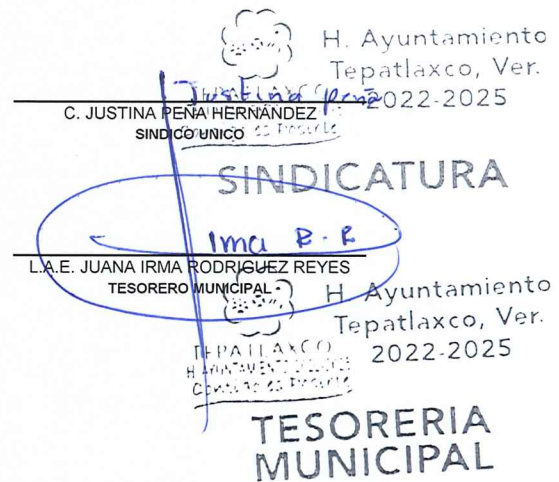 H. Ayuntamiento
Tepatlaxco, Ver.
2022-2025
Justina Peña
C. JUSTINA PEÑA HERNÁNDEZ
SINDICO UNICO
SINDICATURA
Irma R. R
L.A.E. JUANA IRMA RODRIGUEZ REYES
TESORERO MUNICIPAL
H. Ayuntamiento
Tepatlaxco, Ver.
2022-2025
TEPATLAXCO
TESORERIA
MUNICIPAL